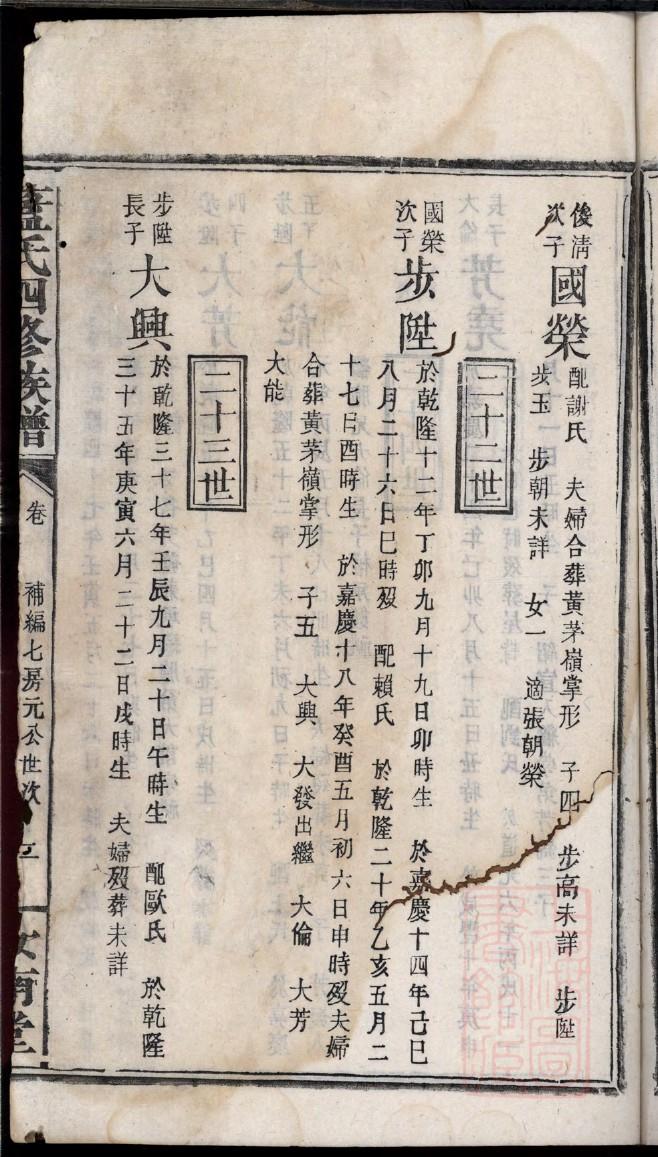 俊清次子
國榮
配謝氏 夫婦合葬黃茅嶺掌形 子四 步高未詳 步陞
步玉 步朝未詳 女一 適張朝榮
二十二世
國榮次子
步陞
於乾隆十二年丁卯九月十九日卯時生 於嘉慶十四年己巳
八月二十六日巳時歿 配賴氏 於乾隆二十年乙亥五月二
十七日酉時生 於嘉慶十八年癸酉五月初六日申時歿夫婦
合葬黃茅嶺掌形 子五 大興 大發出繼 大倫 大芳
大能
二十三世
步陞長子
大興
於乾隆三十七年壬辰九月二十日午時生 配歐氏 於乾隆
三十五年庚寅六月二十二日戌時生 夫婦歿葬未詳
藍氏四修族譜
卷
補編七房元公世次
汝南堂